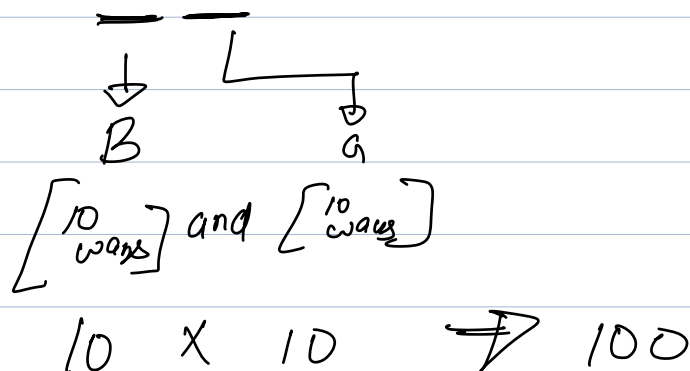 B G
[10 ways] and [10 ways]
10 × 10 ⇒ 100